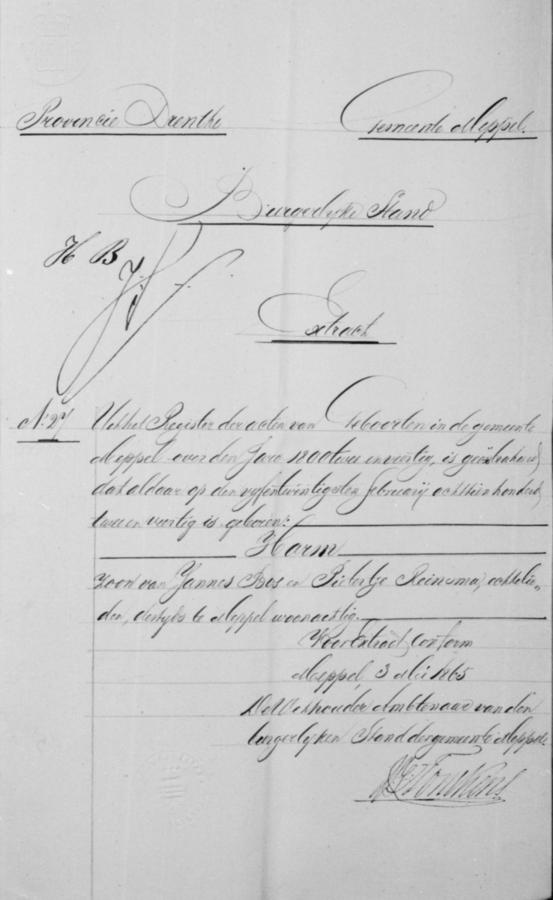 Provincie Drenthe
Gemeente Meppel.
Burgerlijke Stand
H B
Extract
No. 27 Uit het Register der acten van Geboorten in de gemeente
Meppel over den Jare 1800 twee en veertig, is geëxtraheerd
dat aldaar op den vijfentwintigsten februarij achttienhonderd
twee en veertig is geboren:
Harm
zoon van Jannes Bos en Pietertje Reinsma, echtelie„
den, destijds te Meppel woonachtig.
Voor Extract Conform
Meppel, 3 Mei 1865
De Wethouder Ambtenaar van den
burgerlijken Stand der gemeente Meppel.